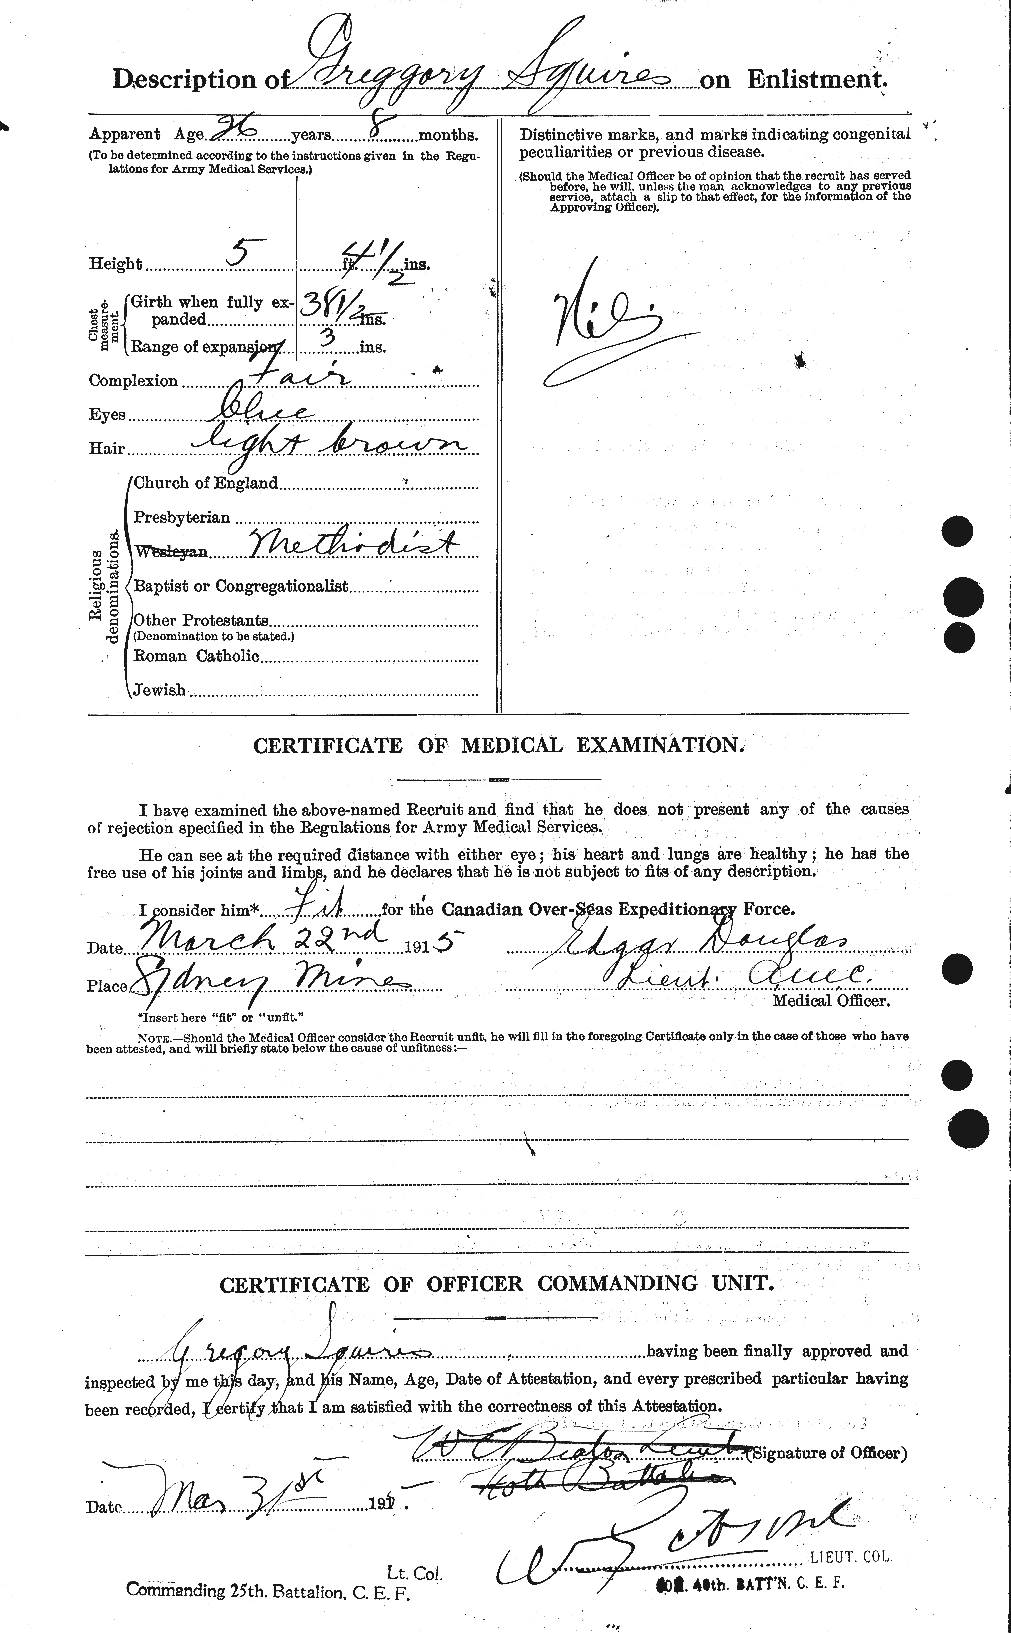 Description of Greggory Squires on Enlistment.
Apparent Age 26 years 8 months.
(To be determined according to the instructions given in the Regu-
lations for Army Medical Services.)
Height 5 ft. 4 1/2 ins.
Chest measure-ment.
Girth when fully ex-
panded 38 1/2 ins.
Range of expansion 3 ins.
Complexion Fair
Eyes blue
Hair light brown
Religious denominations.
Church of England
Presbyterian
Wesleyan Methodist
Baptist or Congregationalist
Other Protestants
(Denomination to be stated.)
Roman Catholic
Jewish
Distinctive marks, and marks indicating congenital
peculiarities or previous disease.
(Should the Medical Officer be of opinion that the recruit has served
before, he will, unless the man acknowledges to any previous
service, attach a slip to that effect, for the information of the
Approving Officer).
Nil
CERTIFICATE OF MEDICAL EXAMINATION.
I have examined the above-named Recruit and find that he does not present any of the causes
of rejection specified in the Regulations for Army Medical Services.
He can see at the required distance with either eye; his heart and lungs are healthy; he has the
free use of his joints and limbs, and he declares that he is not subject to fits of any description.
I consider him* Fit for the Canadian Over-Seas Expeditionary Force.
Date March 22nd 1915 Edgar Douglas
Place Sydney Mines Lieut.
Medical Officer.
*Insert here "fit" or "unfit."
NOTE.—Should the Medical Officer consider the Recruit unfit, he will fill in the foregoing Certificate only in the case of those who have
been attested, and will briefly state below the cause of unfitness:—
CERTIFICATE OF OFFICER COMMANDING UNIT.
Gregory Squires having been finally approved and
inspected by me this day, and his Name, Age, Date of Attestation, and every prescribed particular having
been recorded, I certify that I am satisfied with the correctness of this Attestation.
W C Beaton Lieut. (Signature of Officer)
40th Battalion
Date Mar 31st 1915.
LIEUT. COL.
Lt. Col.
Commanding 25th. Battalion, C. E. F.
40th. BATT'N. C. E. F.